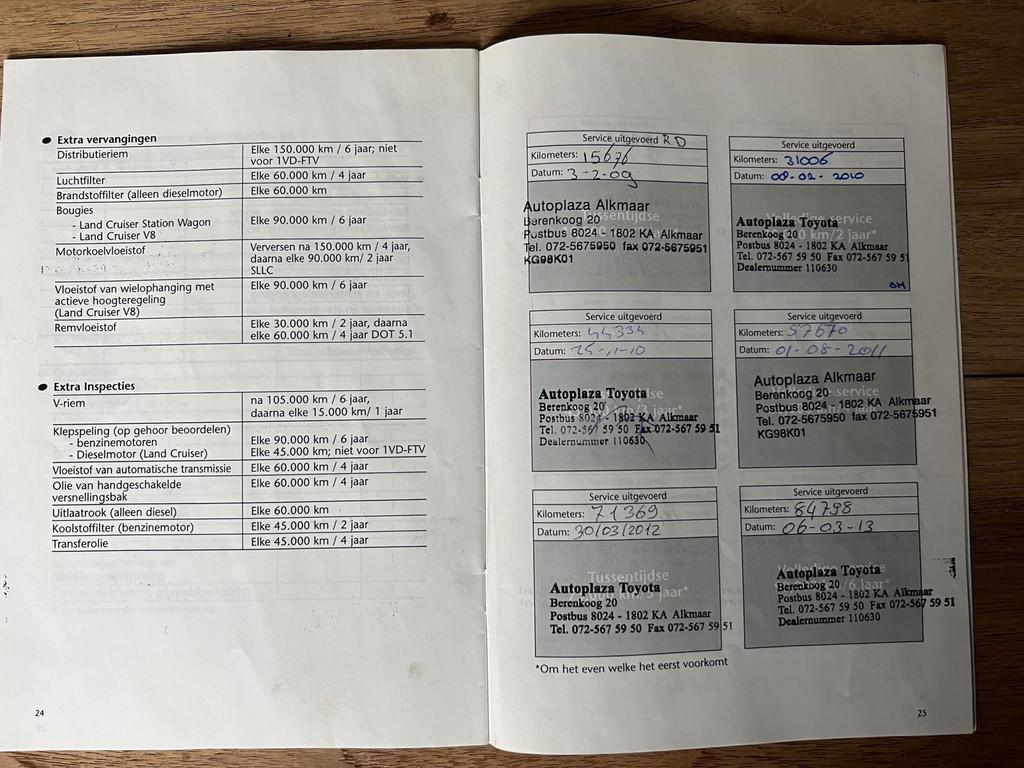 ● Extra vervangingen
Distributieriem Elke 150.000 km / 6 jaar; niet
voor 1VD-FTV
Luchtfilter Elke 60.000 km / 4 jaar
Brandstoffilter (alleen dieselmotor) Elke 60.000 km
Bougies
- Land Cruiser Station Wagon Elke 90.000 km / 6 jaar
- Land Cruiser V8
Motorkoelvloeistof Verversen na 150.000 km / 4 jaar,
daarna elke 90.000 km/ 2 jaar
SLLC
Vloeistof van wielophanging met Elke 90.000 km / 6 jaar
actieve hoogteregeling
(Land Cruiser V8)
Remvloeistof Elke 30.000 km / 2 jaar, daarna
elke 60.000 km / 4 jaar DOT 5.1
● Extra Inspecties
V-riem na 105.000 km / 6 jaar,
daarna elke 15.000 km/ 1 jaar
Klepspeling (op gehoor beoordelen)
- benzinemotoren Elke 90.000 km / 6 jaar
- Dieselmotor (Land Cruiser) Elke 45.000 km; niet voor 1VD-FTV
Vloeistof van automatische transmissie Elke 60.000 km / 4 jaar
Olie van handgeschakelde Elke 60.000 km / 4 jaar
versnellingsbak
Uitlaatrook (alleen diesel) Elke 60.000 km
Koolstoffilter (benzinemotor) Elke 45.000 km / 2 jaar
Transferolie Elke 45.000 km / 4 jaar
24
Service uitgevoerd RD
Kilometers: 15676
Datum: 3-2-09
Autoplaza Alkmaar
Tussentijdse
Berenkoog 20
Postbus 8024 - 1802 KA Alkmaar
Tel. 072-5675950 fax 072-5675951
KG98K01
Service uitgevoerd
Kilometers: 31006
Datum: 08-02-2010
Volledige service
Autoplaza Toyota
Berenkoog 20 km/2 jaar*
Postbus 8024 - 1802 KA Alkmaar
Tel. 072-567 59 50 Fax 072-567 59 51
Dealernummer 110630
Service uitgevoerd
Kilometers: 44334
Datum: 25-11-10
Autoplaza Toyota
Berenkoog 20
Postbus 8024 - 1802 KA Alkmaar
Tel. 072-567 59 50 Fax 072-567 59 51
Dealernummer 110630
Service uitgevoerd
Kilometers: 57670
Datum: 01-08-2011
Autoplaza Alkmaar
Berenkoog 20
Postbus 8024 - 1802 KA Alkmaar
Tel. 072-5675950 fax 072-5675951
KG98K01
Service uitgevoerd
Kilometers: 71369
Datum: 30/03/2012
Tussentijdse
Autoplaza Toyota
Berenkoog 20 jaar*
Postbus 8024 - 1802 KA Alkmaar
Tel. 072-567 59 50 Fax 072-567 59 51
Service uitgevoerd
Kilometers: 84798
Datum: 06-03-13
Autoplaza Toyota
Berenkoog 20 /6 jaar*
Postbus 8024 - 1802 KA Alkmaar
Tel. 072-567 59 50 Fax 072-567 59 51
Dealernummer 110630
*Om het even welke het eerst voorkomt
25